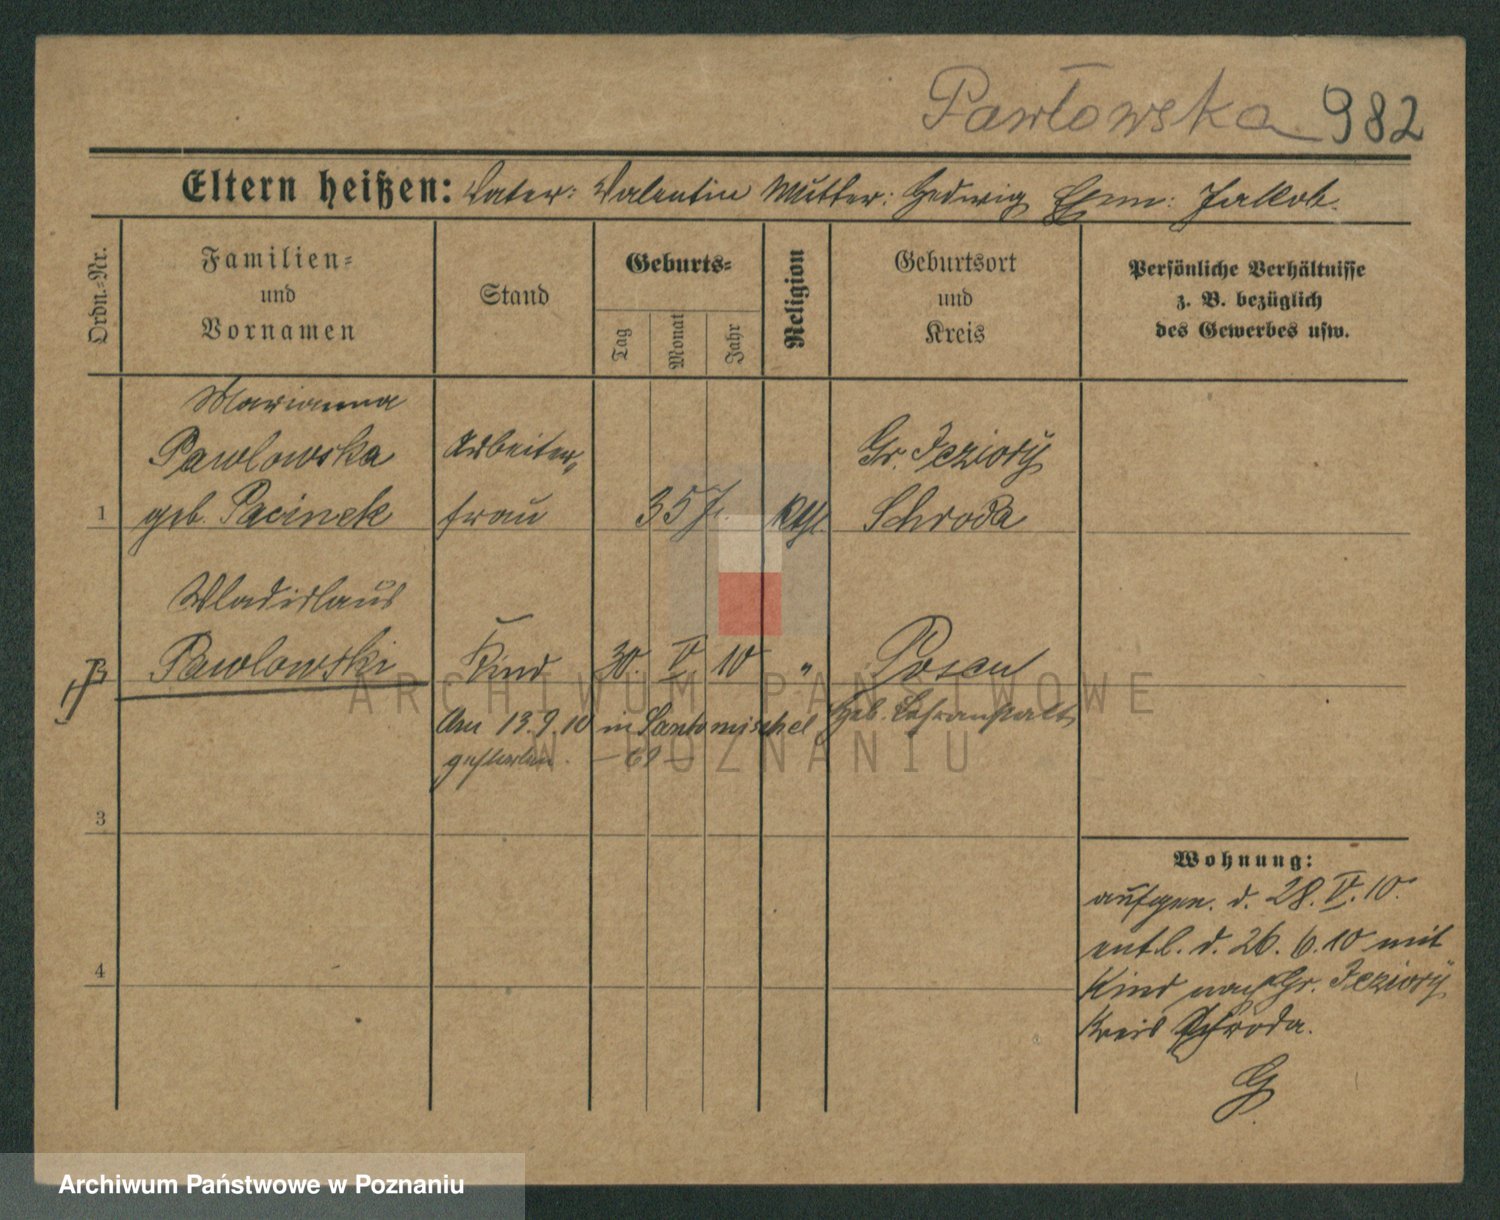 Pawłowska 982
Eltern heißen: Vater: Valentin Mutter: Hedwig Jakob.
Ordn.-Nr.
Familien-
und
Vornamen
Stand
Geburts-
Tag
Monat
Jahr
Religion
Geburtsort
und
Kreis
Persönliche Verhältnisse
z. B. bezüglich
des Gewerbes usw.
Marianna
Pawlowska Arbeiter- Gr. Jeziory
1 geb. Pacinek frau 35 J. Kth. Schroda
Wladislaus
Pawlowski Kind 30. V 10 " Posen
Am 13.9.10 in Santomischel Heb. Lehranstalt
gestorben.
3
4
Wohnung:
aufgen. d. 28. V. 10.
entl. d. 26. 6. 10 mit
Kind nach Gr. Jeziory
Kreis Schroda.
G
ARCHIWUM PAŃSTWOWE
W POZNANIU
Archiwum Państwowe w Poznaniu